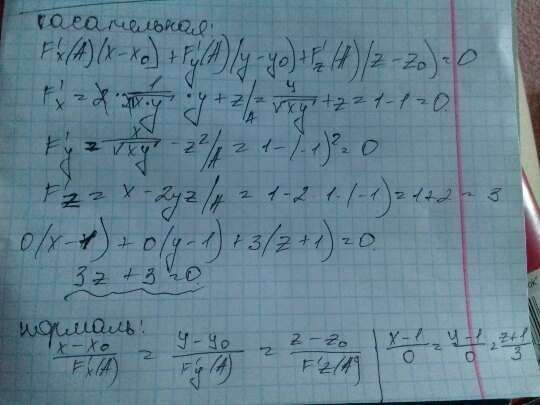 касательная:
F'x(A)(x-x₀)+F'y(A)(y-y₀)+F'z(A)(z-z₀)=0
F'x = 2·1/(2√(x·y))·y+z|A = y/√(xy)+z=1-1=0
F'y = x/√(xy) - z²|A = 1-(-1)²=0
F'z = x-2yz|A = 1-2·1·(-1)=1+2=3
0(x-1)+0(y-1)+3(z+1)=0
3z+3=0
нормаль:
(x-x₀)/F'x(A) = (y-y₀)/F'y(A) = (z-z₀)/F'z(A) | (x-1)/0 = (y-1)/0 = (z+1)/3